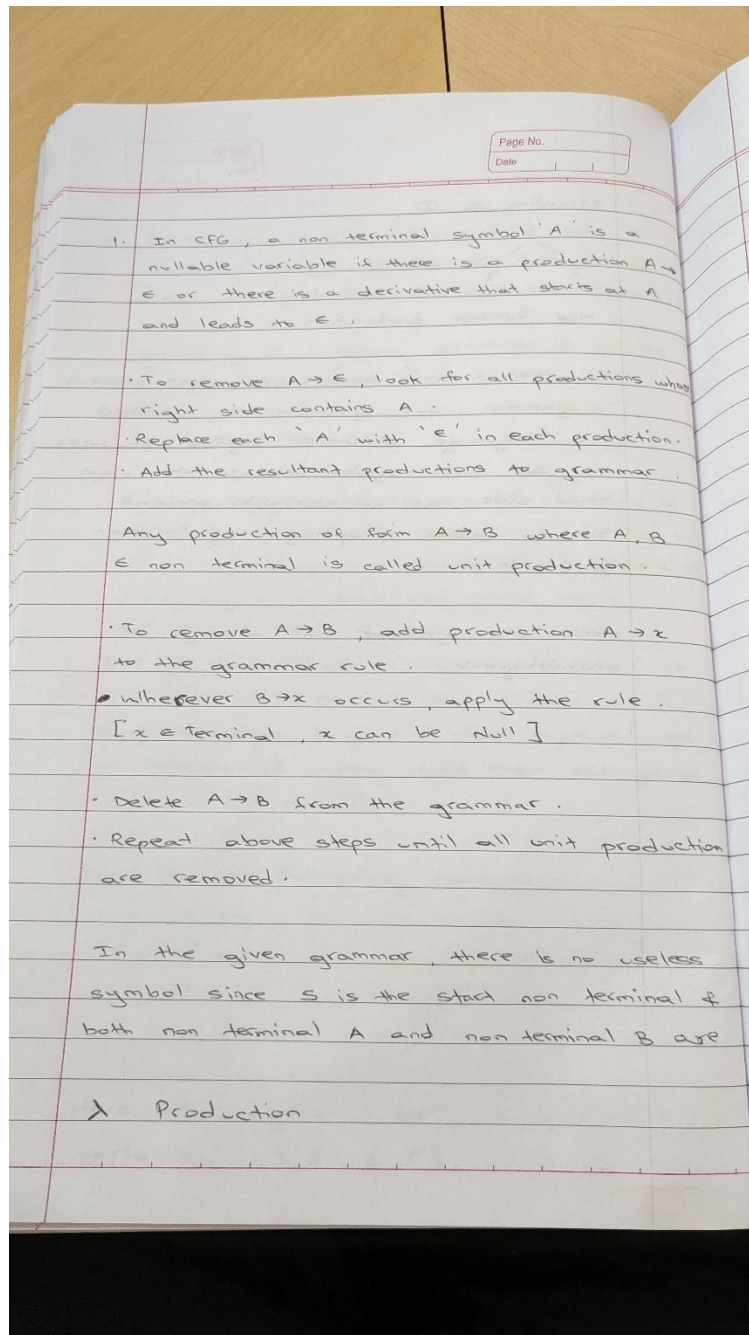 Page No.
Date
1. In CFG, a non terminal symbol 'A' is a
nullable variable if there is a production A→
∈ or there is a derivative that starts at A
and leads to ∈.
· To remove A→∈, look for all productions whos
right side contains A.
· Replace each 'A' with '∈' in each production.
· Add the resultant productions to grammar.
Any production of form A→B where A, B
∈ non terminal is called unit production.
· To remove A→B, add production A→x
to the grammar rule.
• Wherever B→x occurs, apply the rule.
[x ∈ Terminal, x can be Null]
· Delete A→B from the grammar.
· Repeat above steps until all unit production
are removed.
In the given grammar, there is no useless
symbol since S is the start non terminal &
both non terminal A and non terminal B are
λ Production